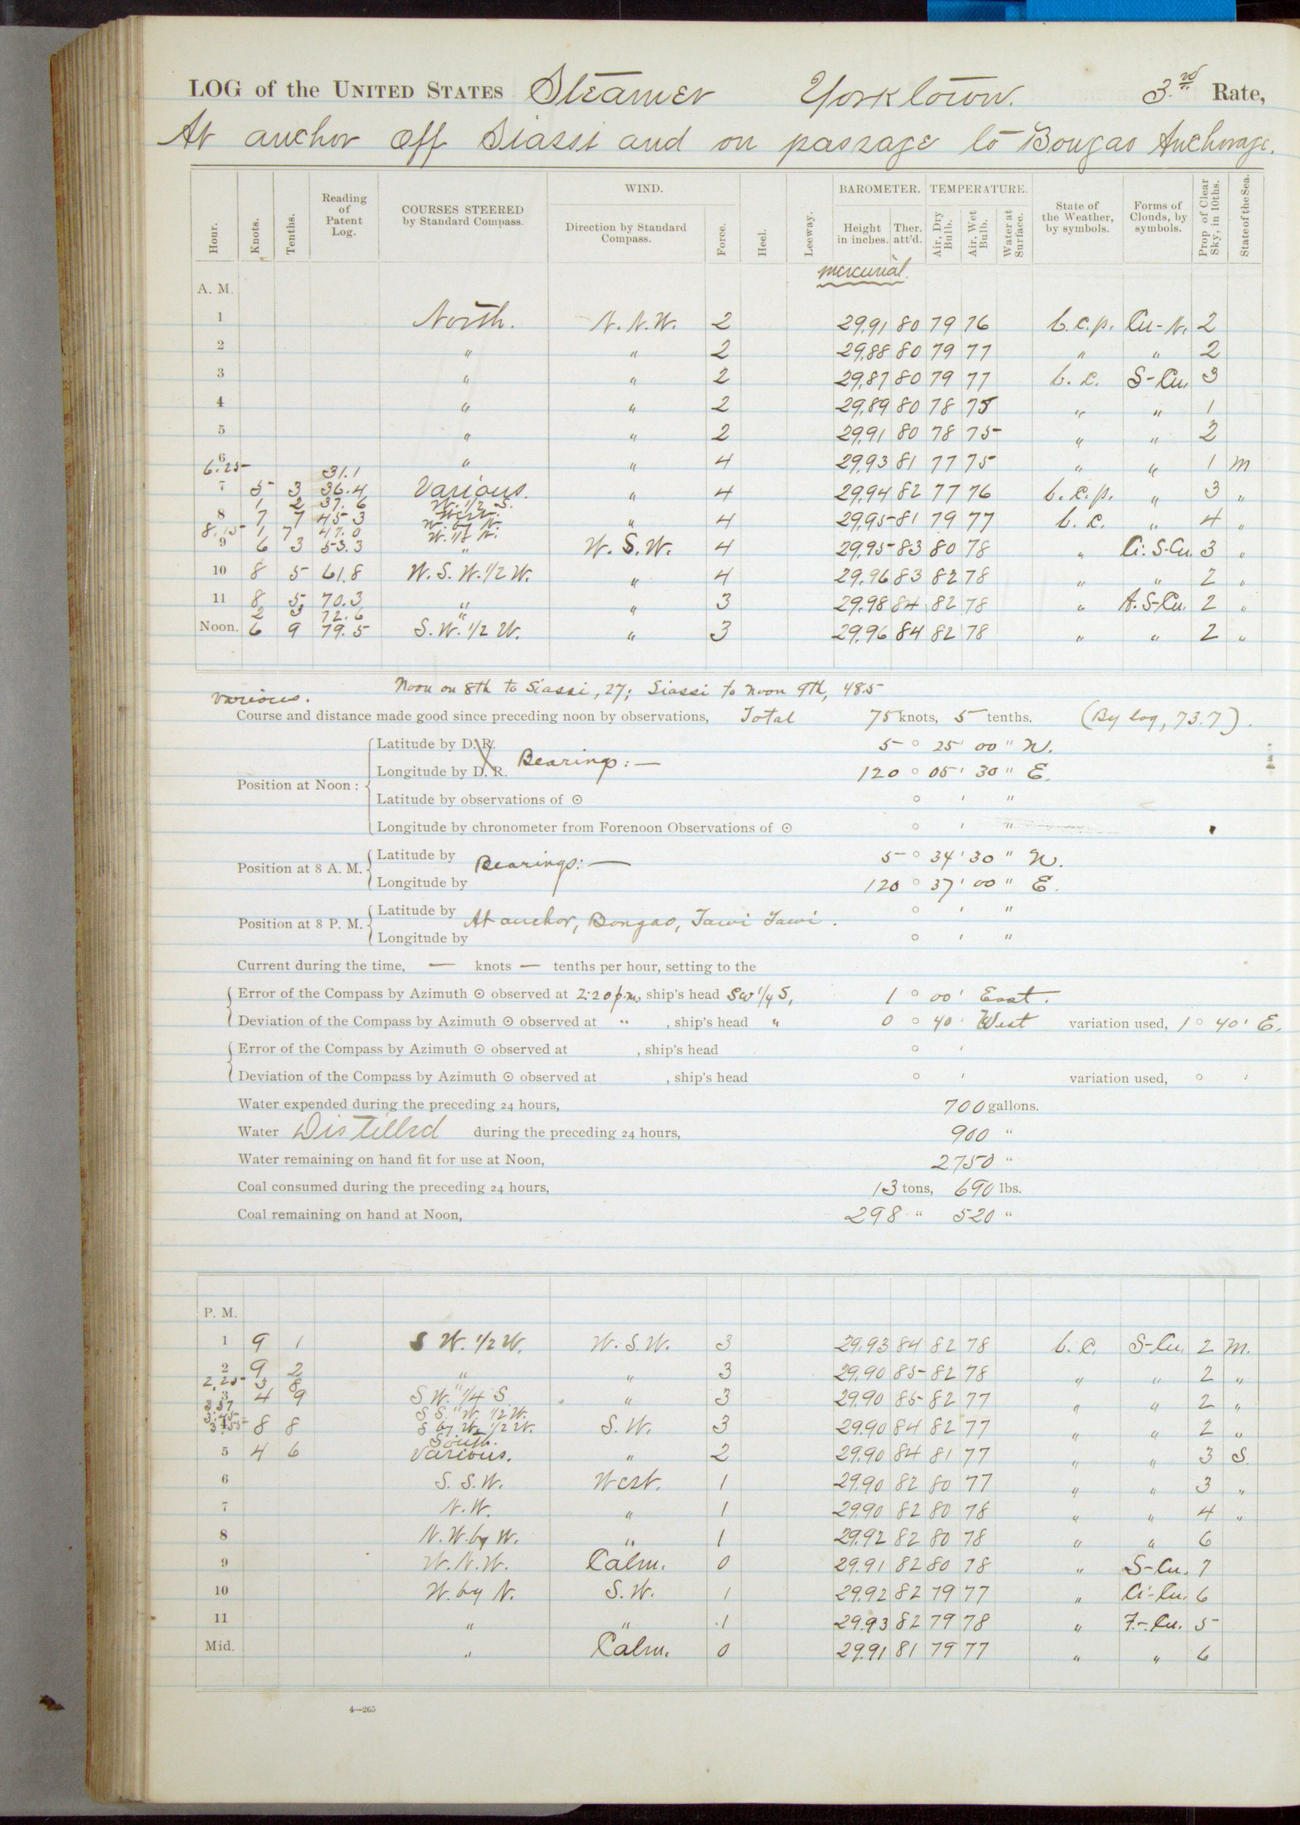 LOG of the UNITED STATES Steamer Yorktown. 3.rd Rate,
At anchor off Siassi and on passage to Bongao Anchorage.
Hour. Knots. Tenths. Reading of Patent Log. COURSES STEERED by Standard Compass. WIND. Direction by Standard Compass. Force. Heel. Leeway. BAROMETER. Height in inches. Ther. att'd. TEMPERATURE. Air, Dry Bulb. Air, Wet Bulb. Water at Surface. State of the Weather, by symbols. Forms of Clouds, by symbols. Prop. of Clear Sky, in 10ths. State of the Sea.
mercurial
A. M.
1 North. N.N.W. 2 29.91 80 79 76 b.c.p. Cu-N. 2
2 " " 2 29.88 80 79 77 " " 2
3 " " 2 29.87 80 79 77 b.c. S-Cu. 3
4 " " 2 29.89 80 78 75 " " 1
5 " " 2 29.91 80 78 75 " " 2
6 " " 4 29.93 81 77 75 " " 1 m
6.25 31.1
7 5 3 36.4 Various. " 4 29.94 82 77 76 b.c.p. " 3 "
1 2 37.6 W. 1/2 S.
8 7 7 45.3 West. " 4 29.95 81 79 77 b.c. " 4 "
W. by N.
8.15 1 7 47.0 W. 1/2 N.
9 6 3 53.3 " W.S.W. 4 29.95 83 80 78 " Ci. S-Cu. 3 "
10 8 5 61.8 W.S.W. 1/2 W. " 4 29.96 83 82 78 " " 2 "
11 8 5 70.3 " " 3 29.98 84 82 78 " A. S-Cu. 2 "
2 3 72.6 "
Noon. 6 9 79.5 S.W. 1/2 W. " 3 29.96 84 82 78 " " 2 "
Noon on 8th to Siassi, 27; Siassi to noon 9th, 48.5
various.
Course and distance made good since preceding noon by observations, Total 75 knots, 5 tenths. (By log, 73.7).
Position at Noon: Latitude by D. R. Bearings:— 5 ° 25 ' 00 " N.
Longitude by D. R. 120 ° 05 ' 30 " E.
Latitude by observations of ☉ ° ' "
Longitude by chronometer from Forenoon Observations of ☉ ° ' "
Position at 8 A. M. Latitude by Bearings:— 5 ° 34 ' 30 " N.
Longitude by 120 ° 37 ' 00 " E.
Position at 8 P. M. Latitude by At anchor, Bongao, Tawi Tawi. ° ' "
Longitude by ° ' "
Current during the time, — knots — tenths per hour, setting to the
Error of the Compass by Azimuth ☉ observed at 2:20 p.m., ship's head SW 1/4 S, 1 ° 00 ' East.
Deviation of the Compass by Azimuth ☉ observed at " , ship's head " 0 ° 40 ' West variation used, 1 ° 40 ' E.
Error of the Compass by Azimuth ☉ observed at , ship's head ° '
Deviation of the Compass by Azimuth ☉ observed at , ship's head ° ' variation used, ° '
Water expended during the preceding 24 hours, 700 gallons.
Water Distilled during the preceding 24 hours, 900 "
Water remaining on hand fit for use at Noon, 2750 "
Coal consumed during the preceding 24 hours, 13 tons, 690 lbs.
Coal remaining on hand at Noon, 298 " 520 "
P. M.
1 9 1 S W. 1/2 W. W.S.W. 3 29.93 84 82 78 b.c. S-Cu. 2 m.
2 9 2 " " 3 29.90 85 82 78 " " 2 "
2.25 3 8 "
3 4 9 S W. 1/4 S " 3 29.90 85 82 77 " " 2 "
S S. W. 1/2 W.
4 8 8 S by W. 1/2 W. S.W. 3 29.90 84 82 77 " " 2 "
3.55 South.
5 4 6 Various. " 2 29.90 84 81 77 " " 3 S.
6 S.S.W. West. 1 29.90 82 80 77 " " 3 "
7 N.W. " 1 29.90 82 80 78 " " 4 "
8 N.W. by W. " 1 29.92 82 80 78 " " 6
9 W.N.W. Calm. 0 29.91 82 80 78 " S-Cu. 7
10 W. by N. S.W. 1 29.92 82 79 77 " Ci-Cu. 6
11 " " 1 29.93 82 79 78 " F.-Cu. 5
Mid. " Calm. 0 29.91 81 79 77 " " 6
4—265